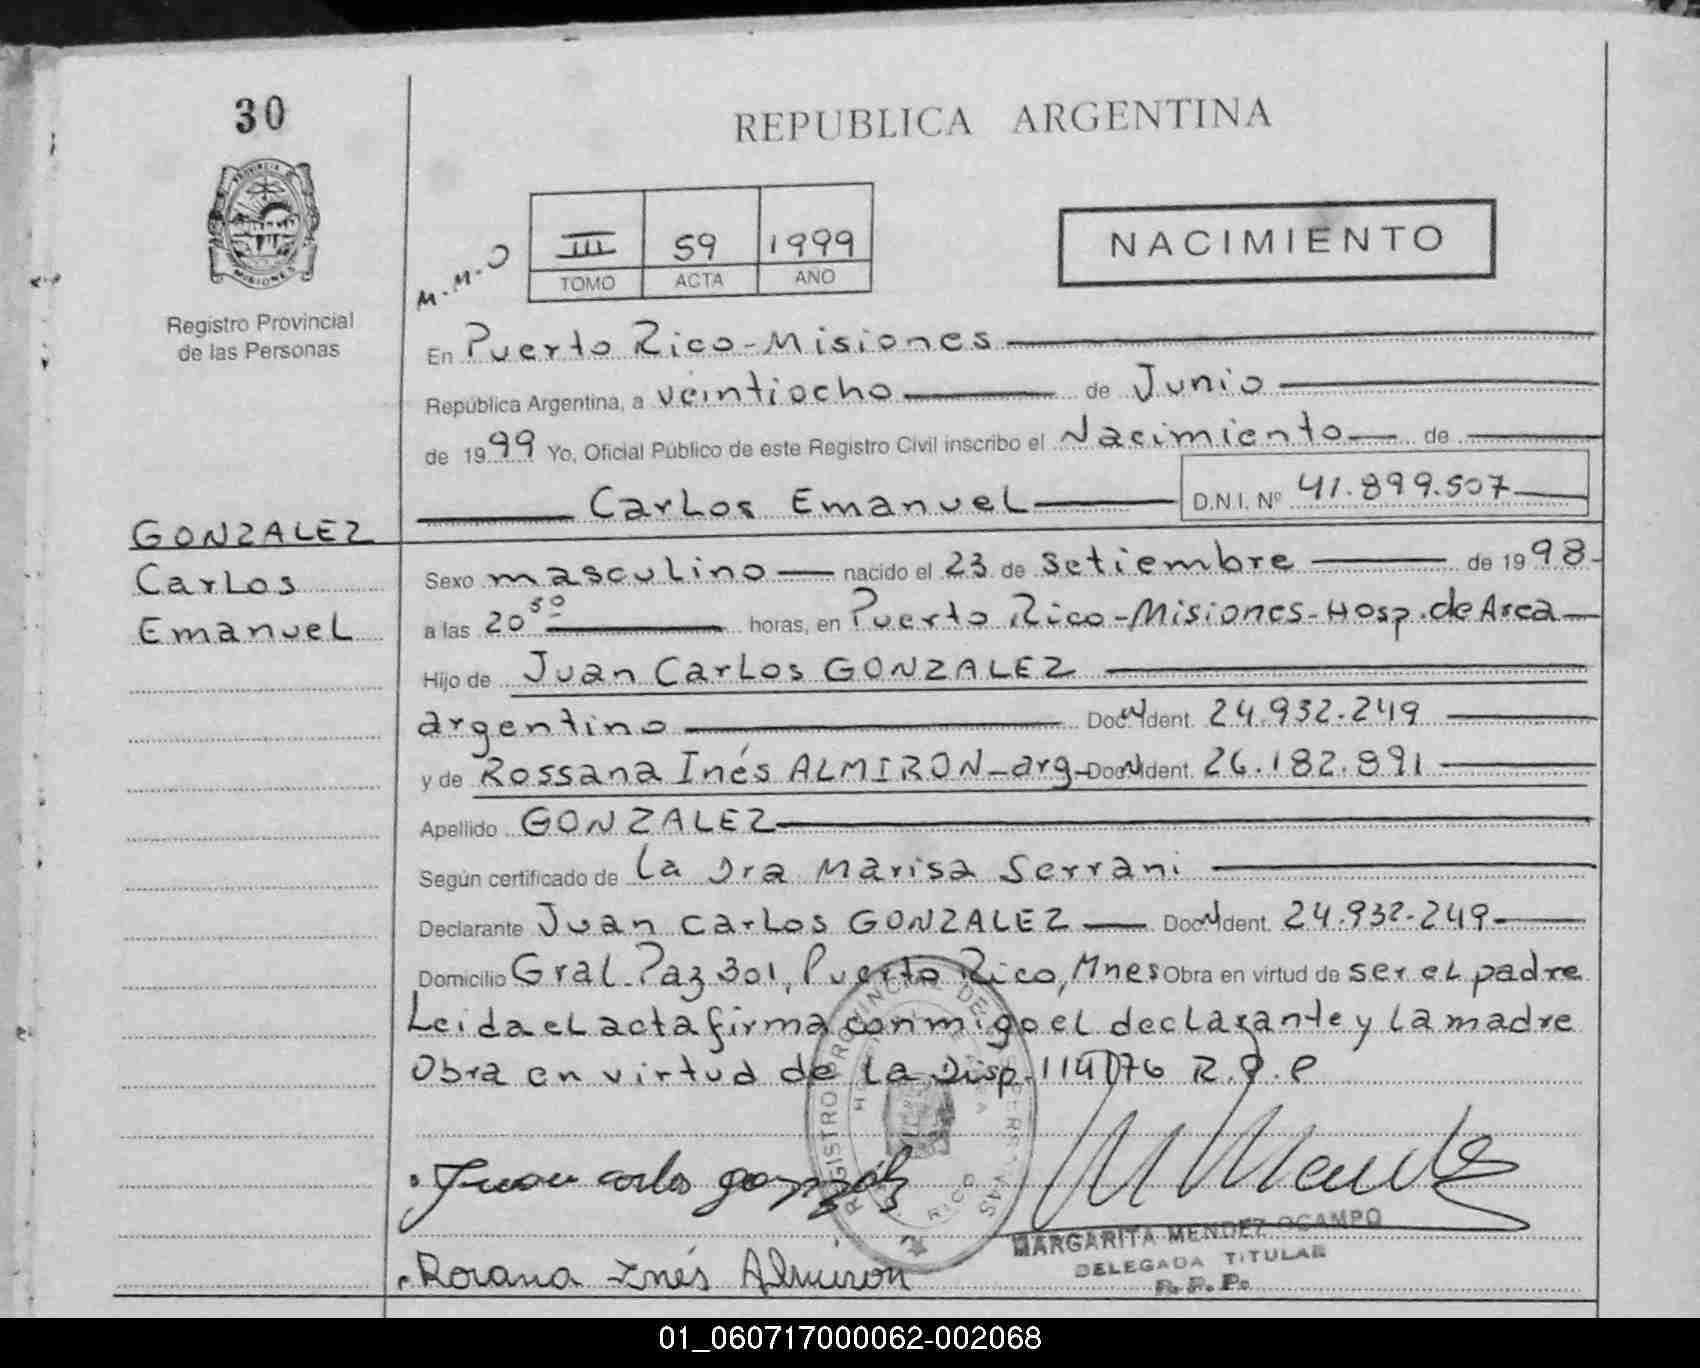 30
REPUBLICA ARGENTINA
PROVINCIA DE
MISIONES
Registro Provincial
de las Personas
M.M.O
III 59 1999
TOMO ACTA AÑO
NACIMIENTO
En Puerto Rico - Misiones
República Argentina, a veintiocho de Junio
de 1999 Yo, Oficial Público de este Registro Civil inscribo el Nacimiento de
Carlos Emanuel D.N.I. Nº 41.899.507
GONZALEZ
Carlos
Emanuel
Sexo masculino nacido el 23 de Setiembre de 1998-
a las 20 50 horas, en Puerto Rico-Misiones-Hosp. de Area
Hijo de Juan Carlos GONZALEZ
argentino Doc. N Ident. 24.932.249
y de Rossana Inés ALMIRON-arg-Doc. N Ident. 26.182.891
Apellido GONZALEZ
Según certificado de La Dra Marisa Serrani
Declarante Juan Carlos GONZALEZ Doc. N Ident. 24.932.249-
Domicilio Gral. Paz 301, Puerto Rico, Mnes Obra en virtud de ser el padre
Leida el acta firma conmigo el declarante y la madre
Obra en virtud de la Disp. 114/76 R.P.P
REGISTRO PROVINCIAL DE LAS PERSONAS
RICO
Juan carlos gonzález
M Mendez
MARGARITA MENDEZ OCAMPO
DELEGADA TITULAR
R.P.P.
Rosana Inés Almiron
01_060717000062-002068